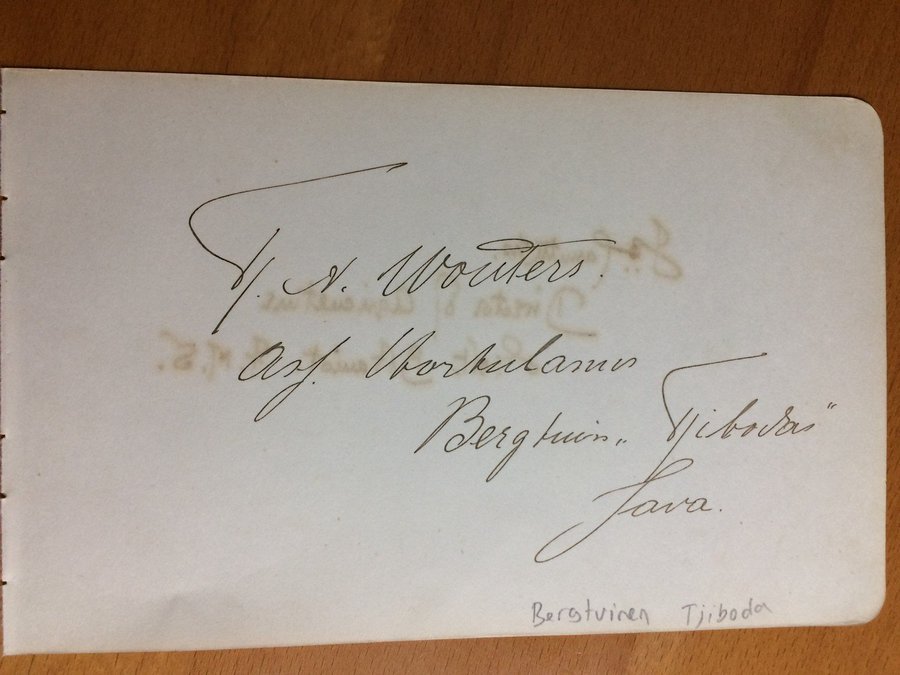 Tj. N. Wouters.
Ass. Hortulanus
Bergtuin „Tjibodas"
Java.
Bergtuinen Tjiboda